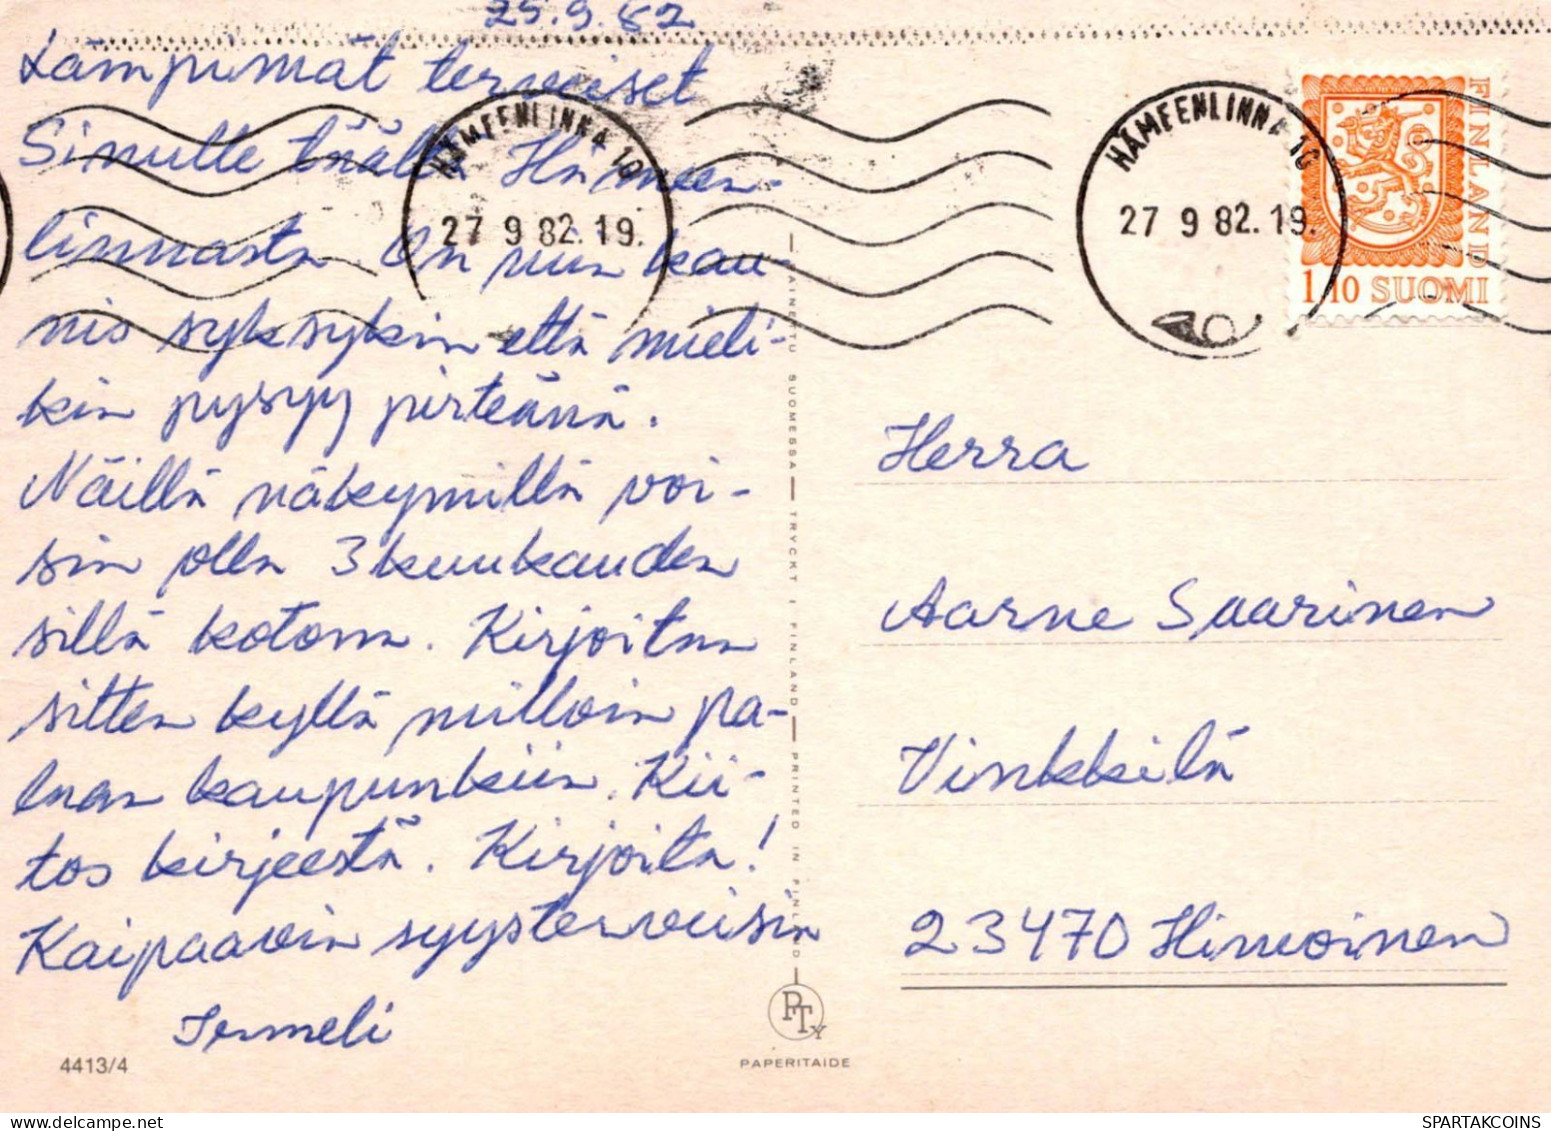 25.9.82
Lämpimät terveiset
Sinulle täältä Hämeen-
linnasta. On niin kau-
nis syksykin että mieli-
kin pysyy pirteänä.
Näillä näkymillä voi-
sin olla 3 kuukauden
sillä kotona. Kirjoitan
sitten kyllä milloin pa-
laan kaupunkiin. Kii-
tos kirjeestä. Kirjoita!
Kaipaavin syysterveisin
Irmeli
4413/4
HÄMEENLINNA 10
27 9 82.19.
HÄMEENLINNA 10
27 9 82.19.
FINLAND
1,10 SUOMI
PAINETTU SUOMESSA — TRYCKT I FINLAND — PRINTED IN FINLAND
Herra
Aarne Saarinen
Vinkkilä
23470 Himoinen
PTy
PAPERITAIDE
SPARTAKCOINS